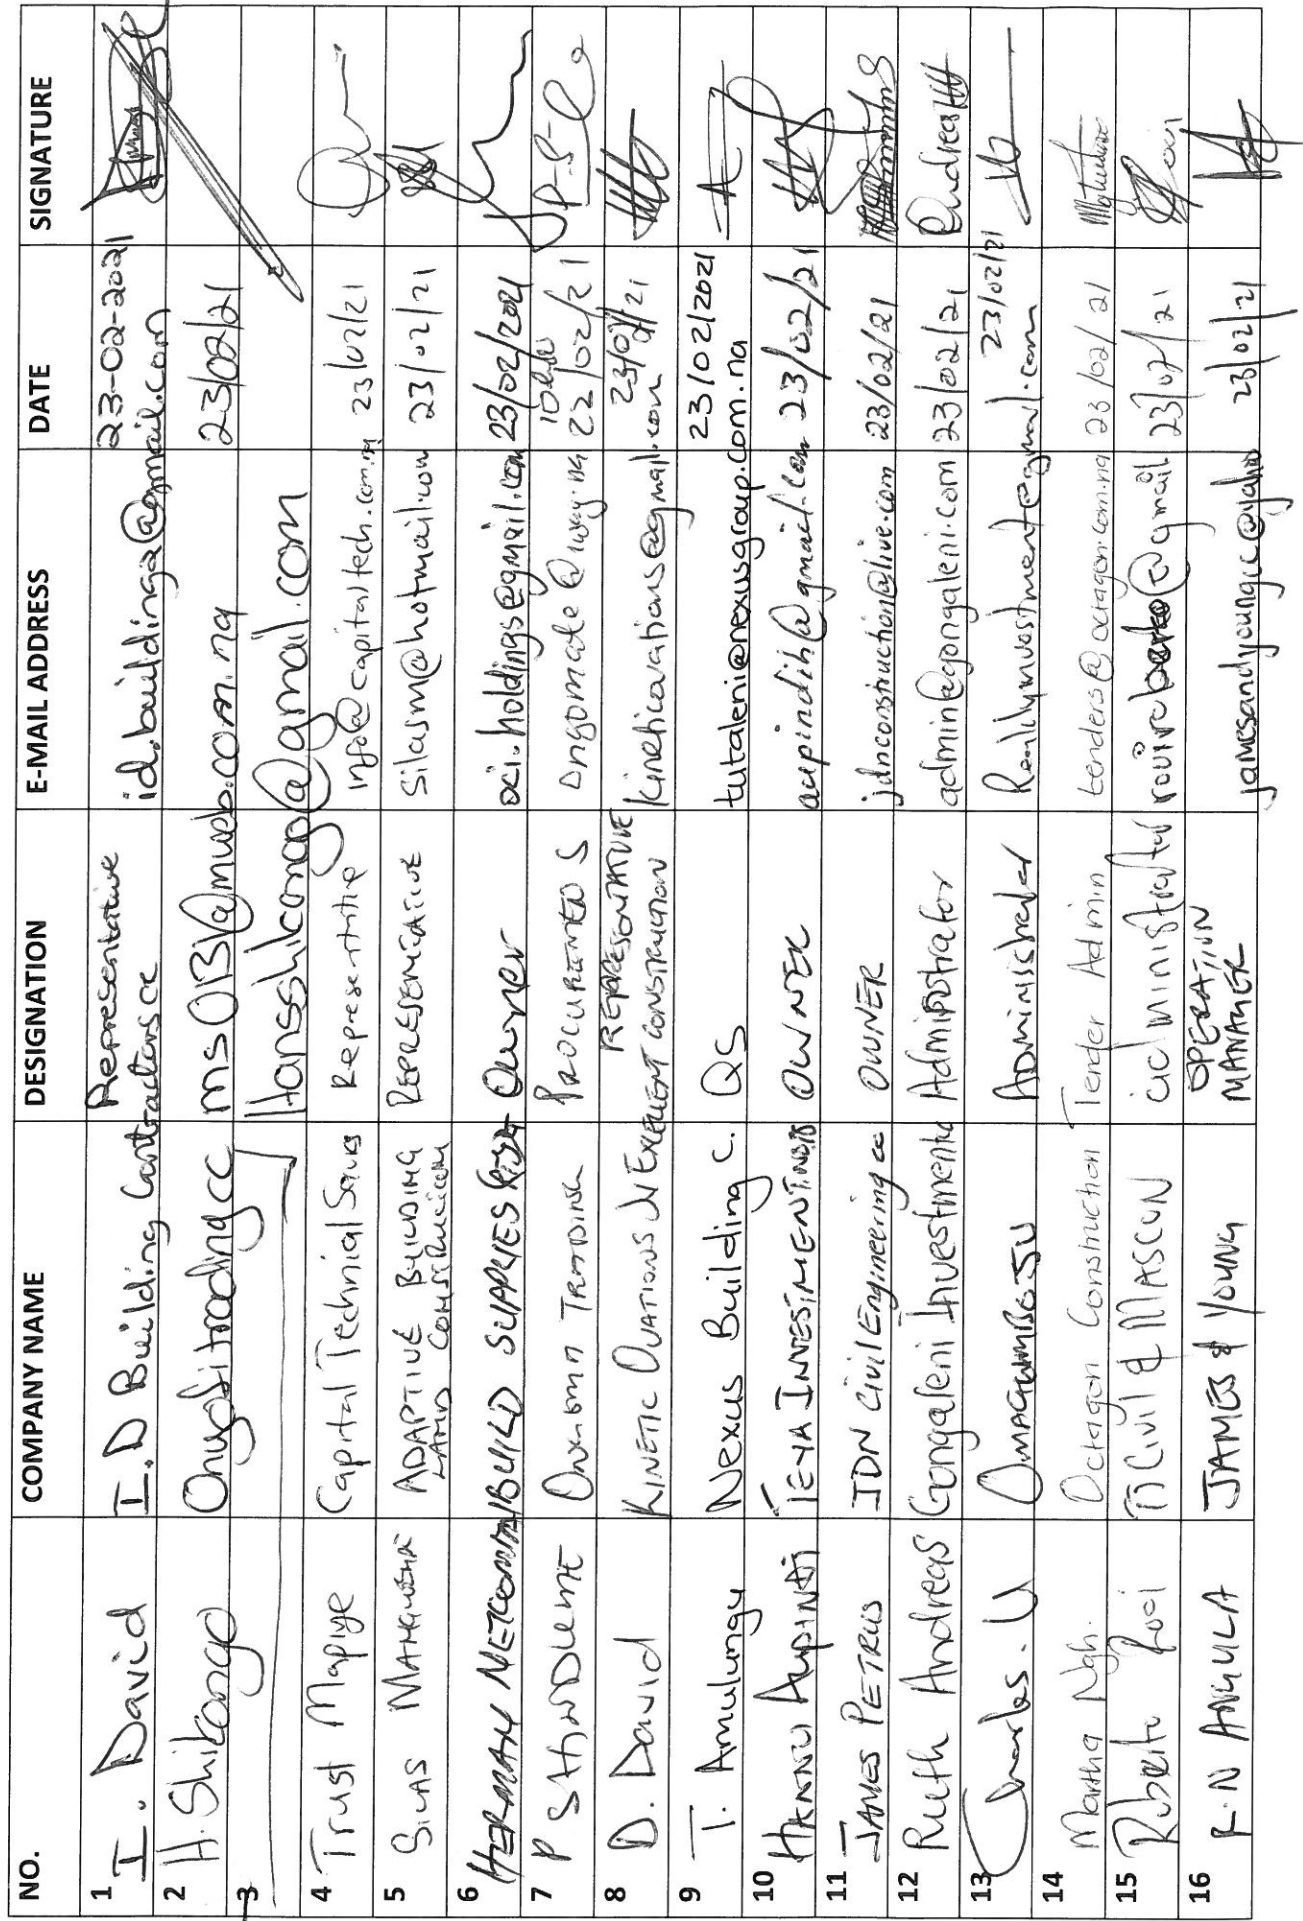 NO. COMPANY NAME DESIGNATION E-MAIL ADDRESS DATE SIGNATURE
1 I. David I.D Building Contractors cc Representative id.buildinga@gmail.com 23-02-2021
2 H. Shikongo Onyofi trading cc ms013@mweb.com.na 23/02/21
3 Hansshikongo@gmail.com
4 Trust Mapiye Capital Technial Representitive info@capitaltech.com.na 23/02/21
5 SILAS ADAPTIVE BUILDING LAND REPRESENTATIVE Silasm@hotmail.com 23/02/21
6 HERMAN BUILD SUPPLIES Owner oci.holdings@gmail.com 23/02/2021
7 P TRADING PROCUREMENT S ongomate@iway.na 22/02/21
8 D. David KINETIC OVATIONS JV EXCELLENT CONSTRUCTION REPRESENTATIVE kineticovations@gmail.com 23/02/21
9 T. Amulungu Nexus Building C. QS tutaleni@nexusgroup.com.na 23/02/2021
10 HANNU AUPINDI TEYA INVESTMENT OWNER aupindih@gmail.com 23/02/21
11 JAMES PETRUS JDN Civil Engineering cc OWNER jdnconstruction@live.com 23/02/21
12 Ruth Andreas Gongaleni Investments Administrator admin@gongaleni.com 23/02/21 @ndreas
13 Charles. U Administrator 23/02/21
14 Martha Ngh. Octagon Construction Tender Admin tenders@octagon.com.na 23/02/21
15 Roberto Civil & MASCON administrator @gmail 23/02/21
16 F.N ANGULA JAMES & YOUNG OPERATION MANAGER jamesandyoungcc@yahoo 23/02/21